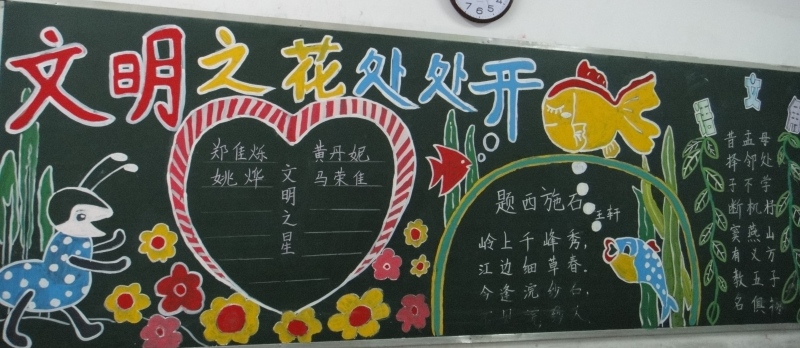 7 6 5
文明之花处处开
郑佳烁 黄丹妮
姚烨 马荣佳
文明之星
题西施石
王轩
岭上千峰秀，
江边细草春。
今逢浣纱石，
浣纱人
语文
昔孟母
择邻处
子不学
断机杼
窦燕山
有义方
教五子
名俱